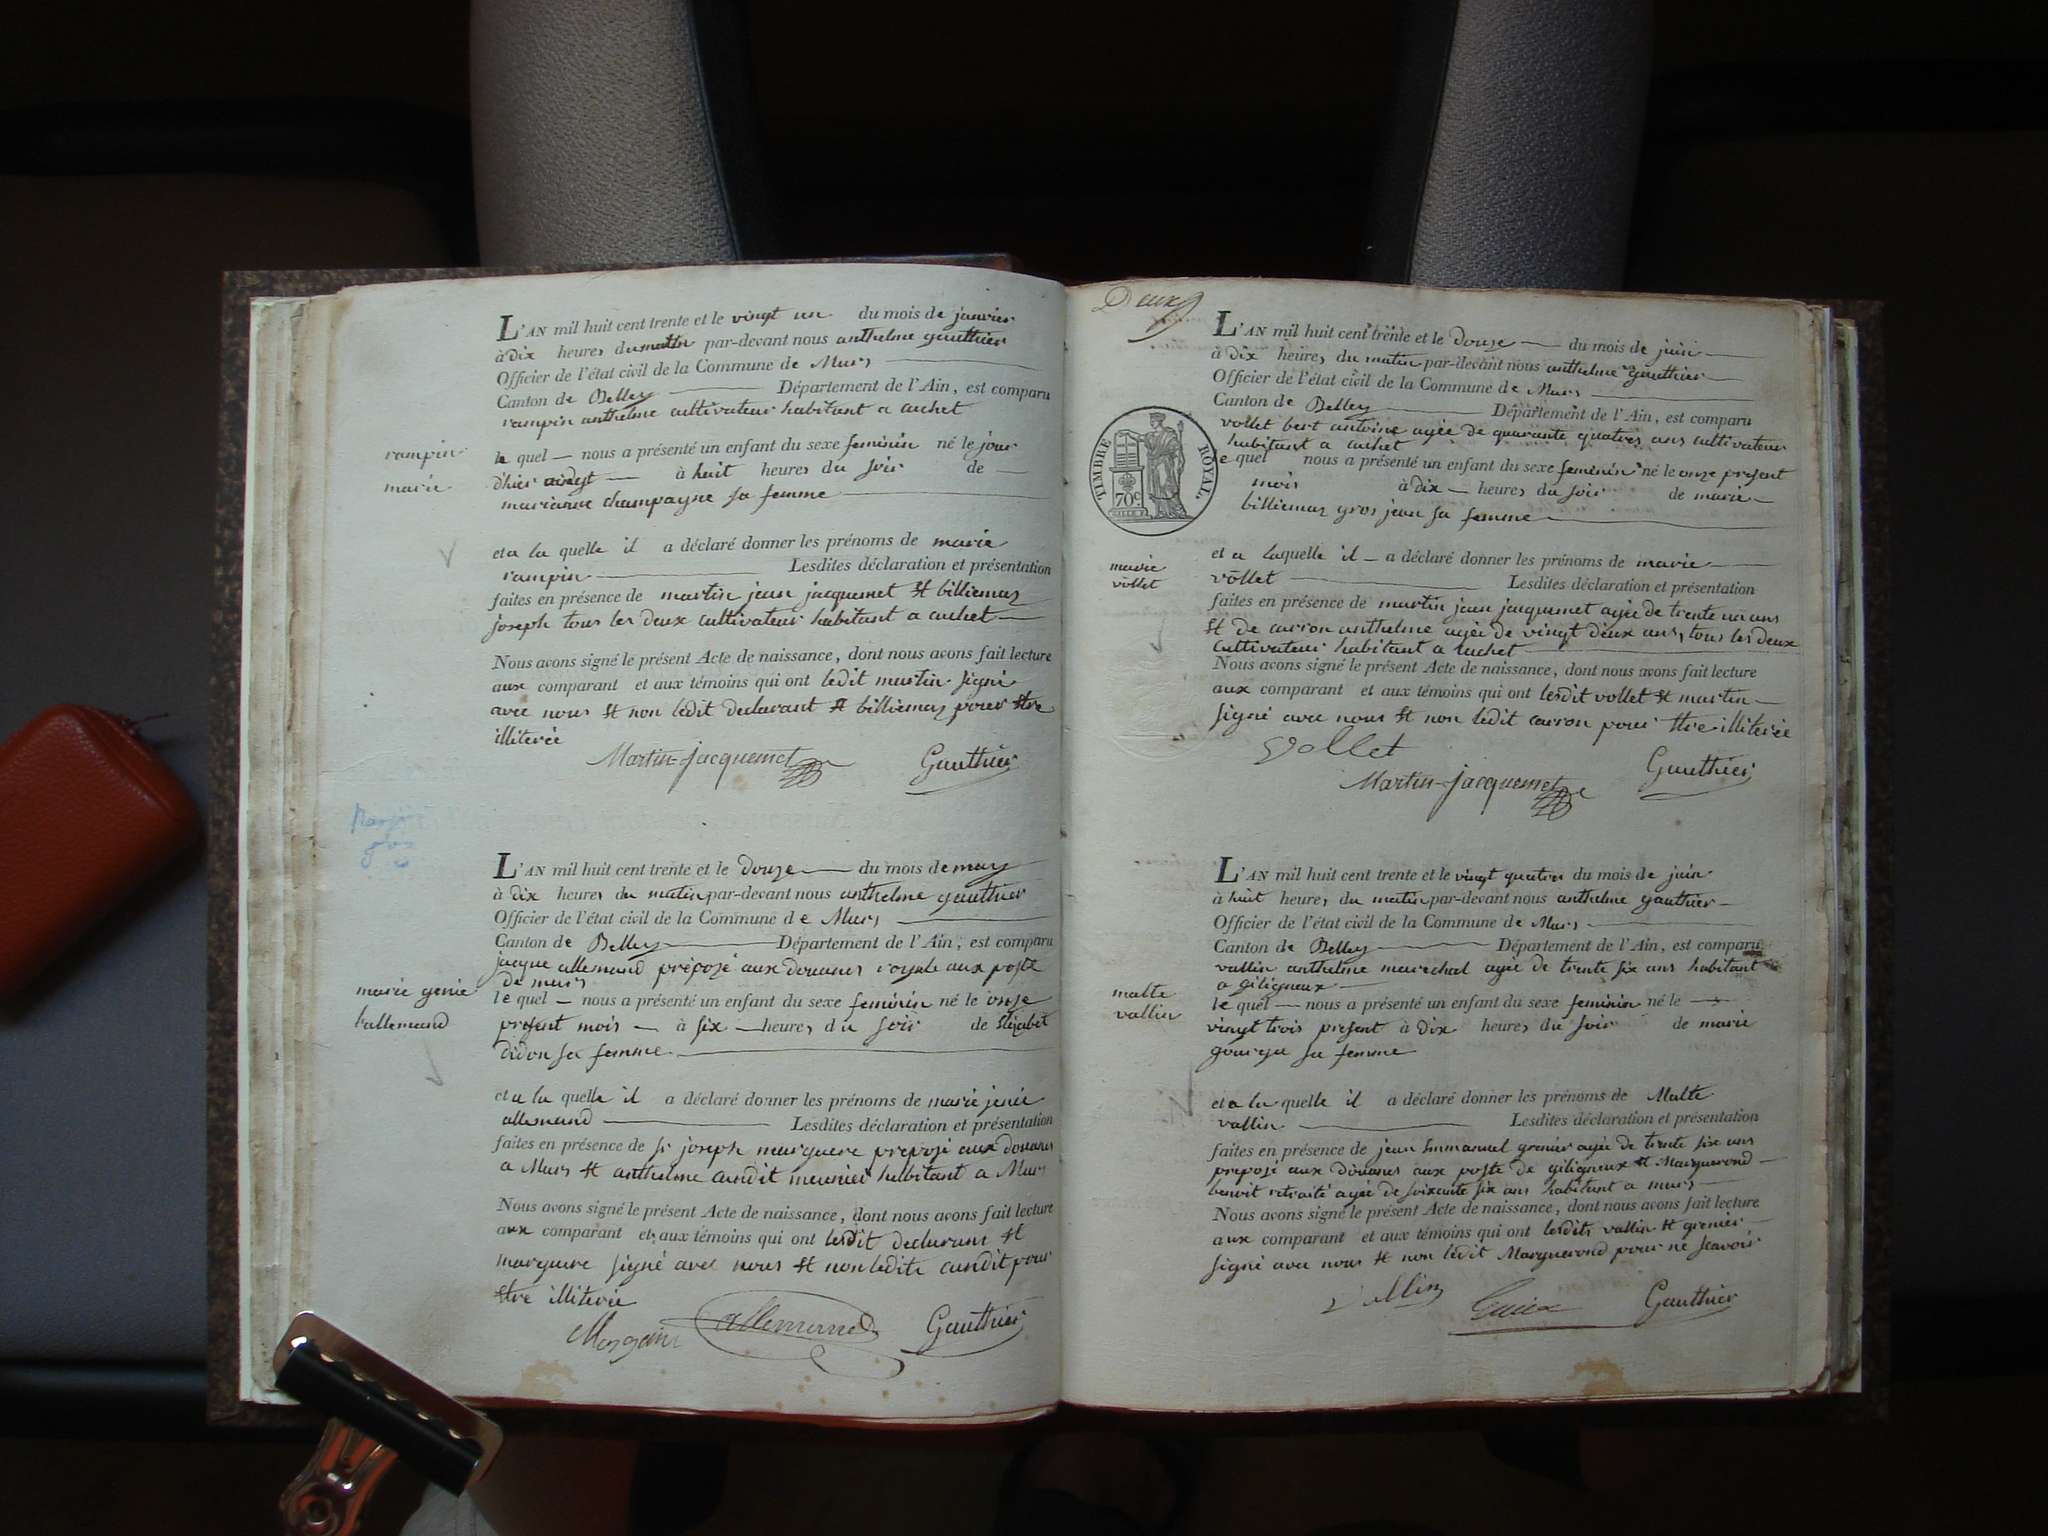 L'AN mil huit cent trente et le vingt un du mois de janvier
à dix heures du matin par-devant nous anthelme gauthier
Officier de l'état civil de la Commune de Murs
Canton de Belley Département de l'Ain, est comparu
rampin anthelme cultivateur habitant a cuchet
rampin
marie
le quel nous a présenté un enfant du sexe feminin né le jour
d'hier vingt à huit heures du soir de
marianne champagne sa femme
et a la quelle il a déclaré donner les prénoms de marie
rampin Lesdites déclaration et présentation
faites en présence de martin jean jacquemet et billiemaz
joseph tous les deux cultivateur habitant a cuchet
Nous avons signé le présent Acte de naissance, dont nous avons fait lecture
aux comparant et aux témoins qui ont ledit martin signé
avec nous et non ledit declarant et billiemaz pour etre
illiterée
Martin-Jacquemet Gauthier
L'AN mil huit cent trente et le douze du mois de mars
à dix heures du matin par-devant nous anthelme gauthier
Officier de l'état civil de la Commune de Murs
Canton de Belley Département de l'Ain, est comparu
jacque allemand préposé aux douanes royale aux poste
de murs
marie genie
lallemand
le quel nous a présenté un enfant du sexe feminin né le onze
present mois à six heures du soir de Elizabet
didon sa femme
et a la quelle il a déclaré donner les prénoms de marie jenie
allemand Lesdites déclaration et présentation
faites en présence de sr joseph marguere preposé aux douanes
a Murs et anthelme candit meunier habitant a Murs
Nous avons signé le présent Acte de naissance, dont nous avons fait lecture
aux comparant et aux témoins qui ont lesdit declarans et
marguere signé avec nous et non ledite candit pour
etre illiterée
allemand Gauthier
Deux
L'AN mil huit cent trente et le douze du mois de juin
à dix heures du matin par-devant nous anthelme gauthier
Officier de l'état civil de la Commune de Murs
Canton de Belley Département de l'Ain, est comparu
vollet bert antoine agée de quarante quatres ans cultivateur
habitant a cuchet
TIMBRE ROYAL.
70c
le quel nous a présenté un enfant du sexe feminin né le onze present
mois à dix heures du soir de marie
billiemaz gros jean sa femme
marie
vollet
et a laquelle il a déclaré donner les prénoms de marie
vollet Lesdites déclaration et présentation
faites en présence de martin jean jacquemet agée de trente un ans
et de carron anthelme agée de vingt deux ans, tous les deux
cultivateurs habitant a cuchet
Nous avons signé le présent Acte de naissance, dont nous avons fait lecture
aux comparant et aux témoins qui ont lesdit vollet et martin
signé avec nous et non ledit carron pour etre illiterée
Vollet
Martin-Jacquemet Gauthier
L'AN mil huit cent trente et le vingt quatres du mois de juin
à huit heures du matin par-devant nous anthelme gauthier
Officier de l'état civil de la Commune de Murs
Canton de Belley Département de l'Ain, est comparu
vallin anthelme marechal agée de trente six ans habitant
a giligneux
malte
vallin
le quel nous a présenté un enfant du sexe feminin né le
vingt trois present à dix heures du soir de marie
gourga sa femme
et a la quelle il a déclaré donner les prénoms de Malte
vallin Lesdites déclaration et présentation
faites en présence de jean Emmanuel grenier agée de trente six ans
preposé aux douanes aux poste de giligneux et Marguerond
benoit retraité agée de soixante six ans habitant a murs
Nous avons signé le présent Acte de naissance, dont nous avons fait lecture
aux comparant et aux témoins qui ont lesdits vallin et grenier
signé avec nous et non ledit Marguerond pour ne scavoir
vallin Gauthier